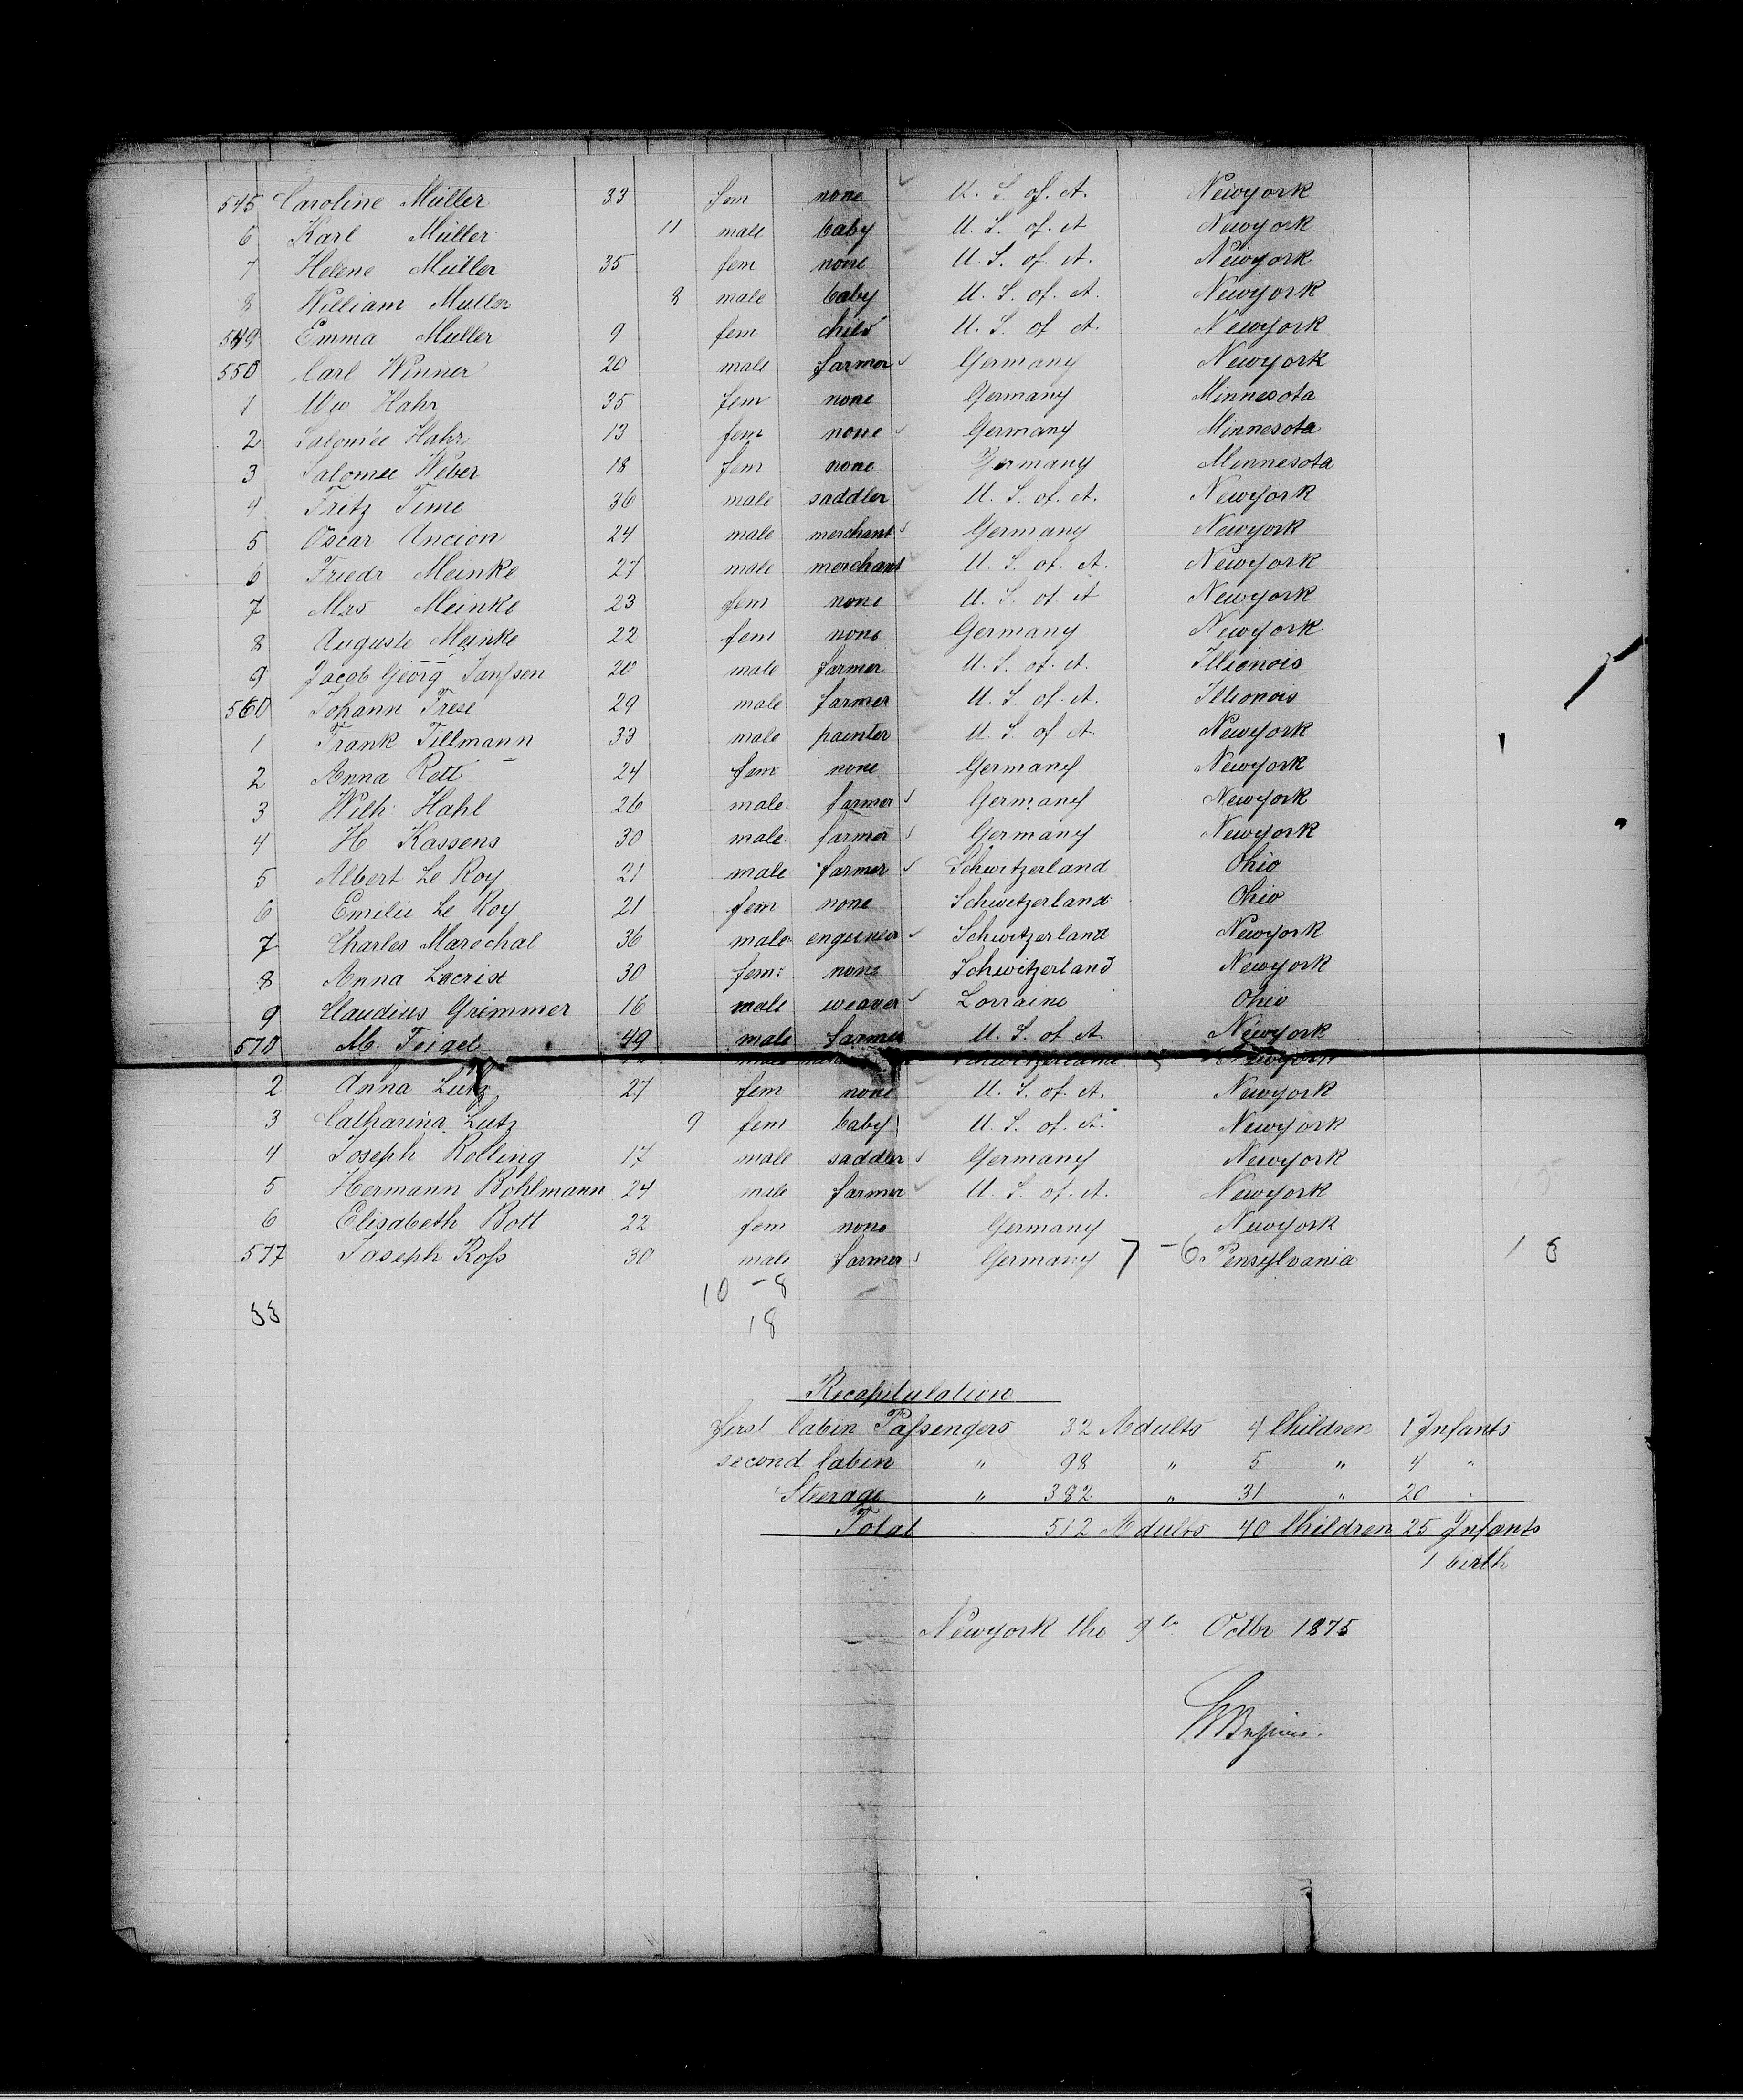 545 Caroline Müller 33 fem none U. S. of. A. Newyork
6 Karl Müller 11 male baby U. S. of. A Newyork
7 Helene Müller 35 fem none U. S. of. A. Newyork
8 William Muller 8 male baby U. S. of. A. Newyork
549 Emma Muller 9 fem child U. S. of A. Newyork
550 Carl Winner 20 male farmer Germany Newyork
1 Ww Hahr 35 fem none Germany Minnesota
2 Salomée Hahr 13 fem none Germany Minnesota
3 Salomee Weber 18 fem none Germany Minnesota
4 Fritz Time 36 male saddler U. S. of. A. Newyork
5 Oscar Ancion 24 male merchant Germany Newyork
6 Friedr Meinke 27 male merchant U. S. of. A. Newyork
7 Mrs Meinke 23 fem none U. S. of. A Newyork
8 Auguste Meinke 22 fem none Germany Newyork
9 Jacob Georg Janssen 20 male farmer U. S. of. A. Illionois
560 Johann Frese 29 male farmer U. S. of. A. Illionois
1 Frank Tillmann 33 male painter U. S. of A. Newyork
2 Anna Rott 24 fem none Germany Newyork
3 Wilh. Hahl 26 male farmer Germany Newyork
4 H. Kassens 30 male farmer Germany Newyork
5 Albert Le Roy 21 male farmer Schwitzerland Ohio
6 Emilie Le Roy 21 fem none Schwitzerland Ohio
7 Charles Marechal 36 male engineer Schwitzerland Newyork
8 Anna Lacrix 30 fem none Schwitzerland Newyork
9 Claudius Grimmer 16 male weaver Lorraine Ohio
570 M. Teigel 49 male farmer U. S. of A. Newyork
male Schwitzerland Newyork
2 Anna Lutz 27 fem none U. S. of. A. Newyork
3 Catharina Lutz 9 fem baby U. S. of. A. Newyork
4 Joseph Rolling 17 male saddler Germany Newyork
5 Hermann Bohlmann 24 male farmer U. S. of. A. Newyork
6 Elisabeth Bott 22 fem none Germany Newyork
577 Joseph Ross 30 male farmer Germany 7 - 6 Pensylvania 1 8
10 - 8
33 18
Recapitulation
first Cabin Passengers 32 Adults 4 Children 1 Infants
second Cabin " 98 " 5 " 4 "
Steerage " 382 " 31 " 20 "
Total 512 Adults 40 Children 25 Infants
1 birth
Newyork the 9th Octbr 1875